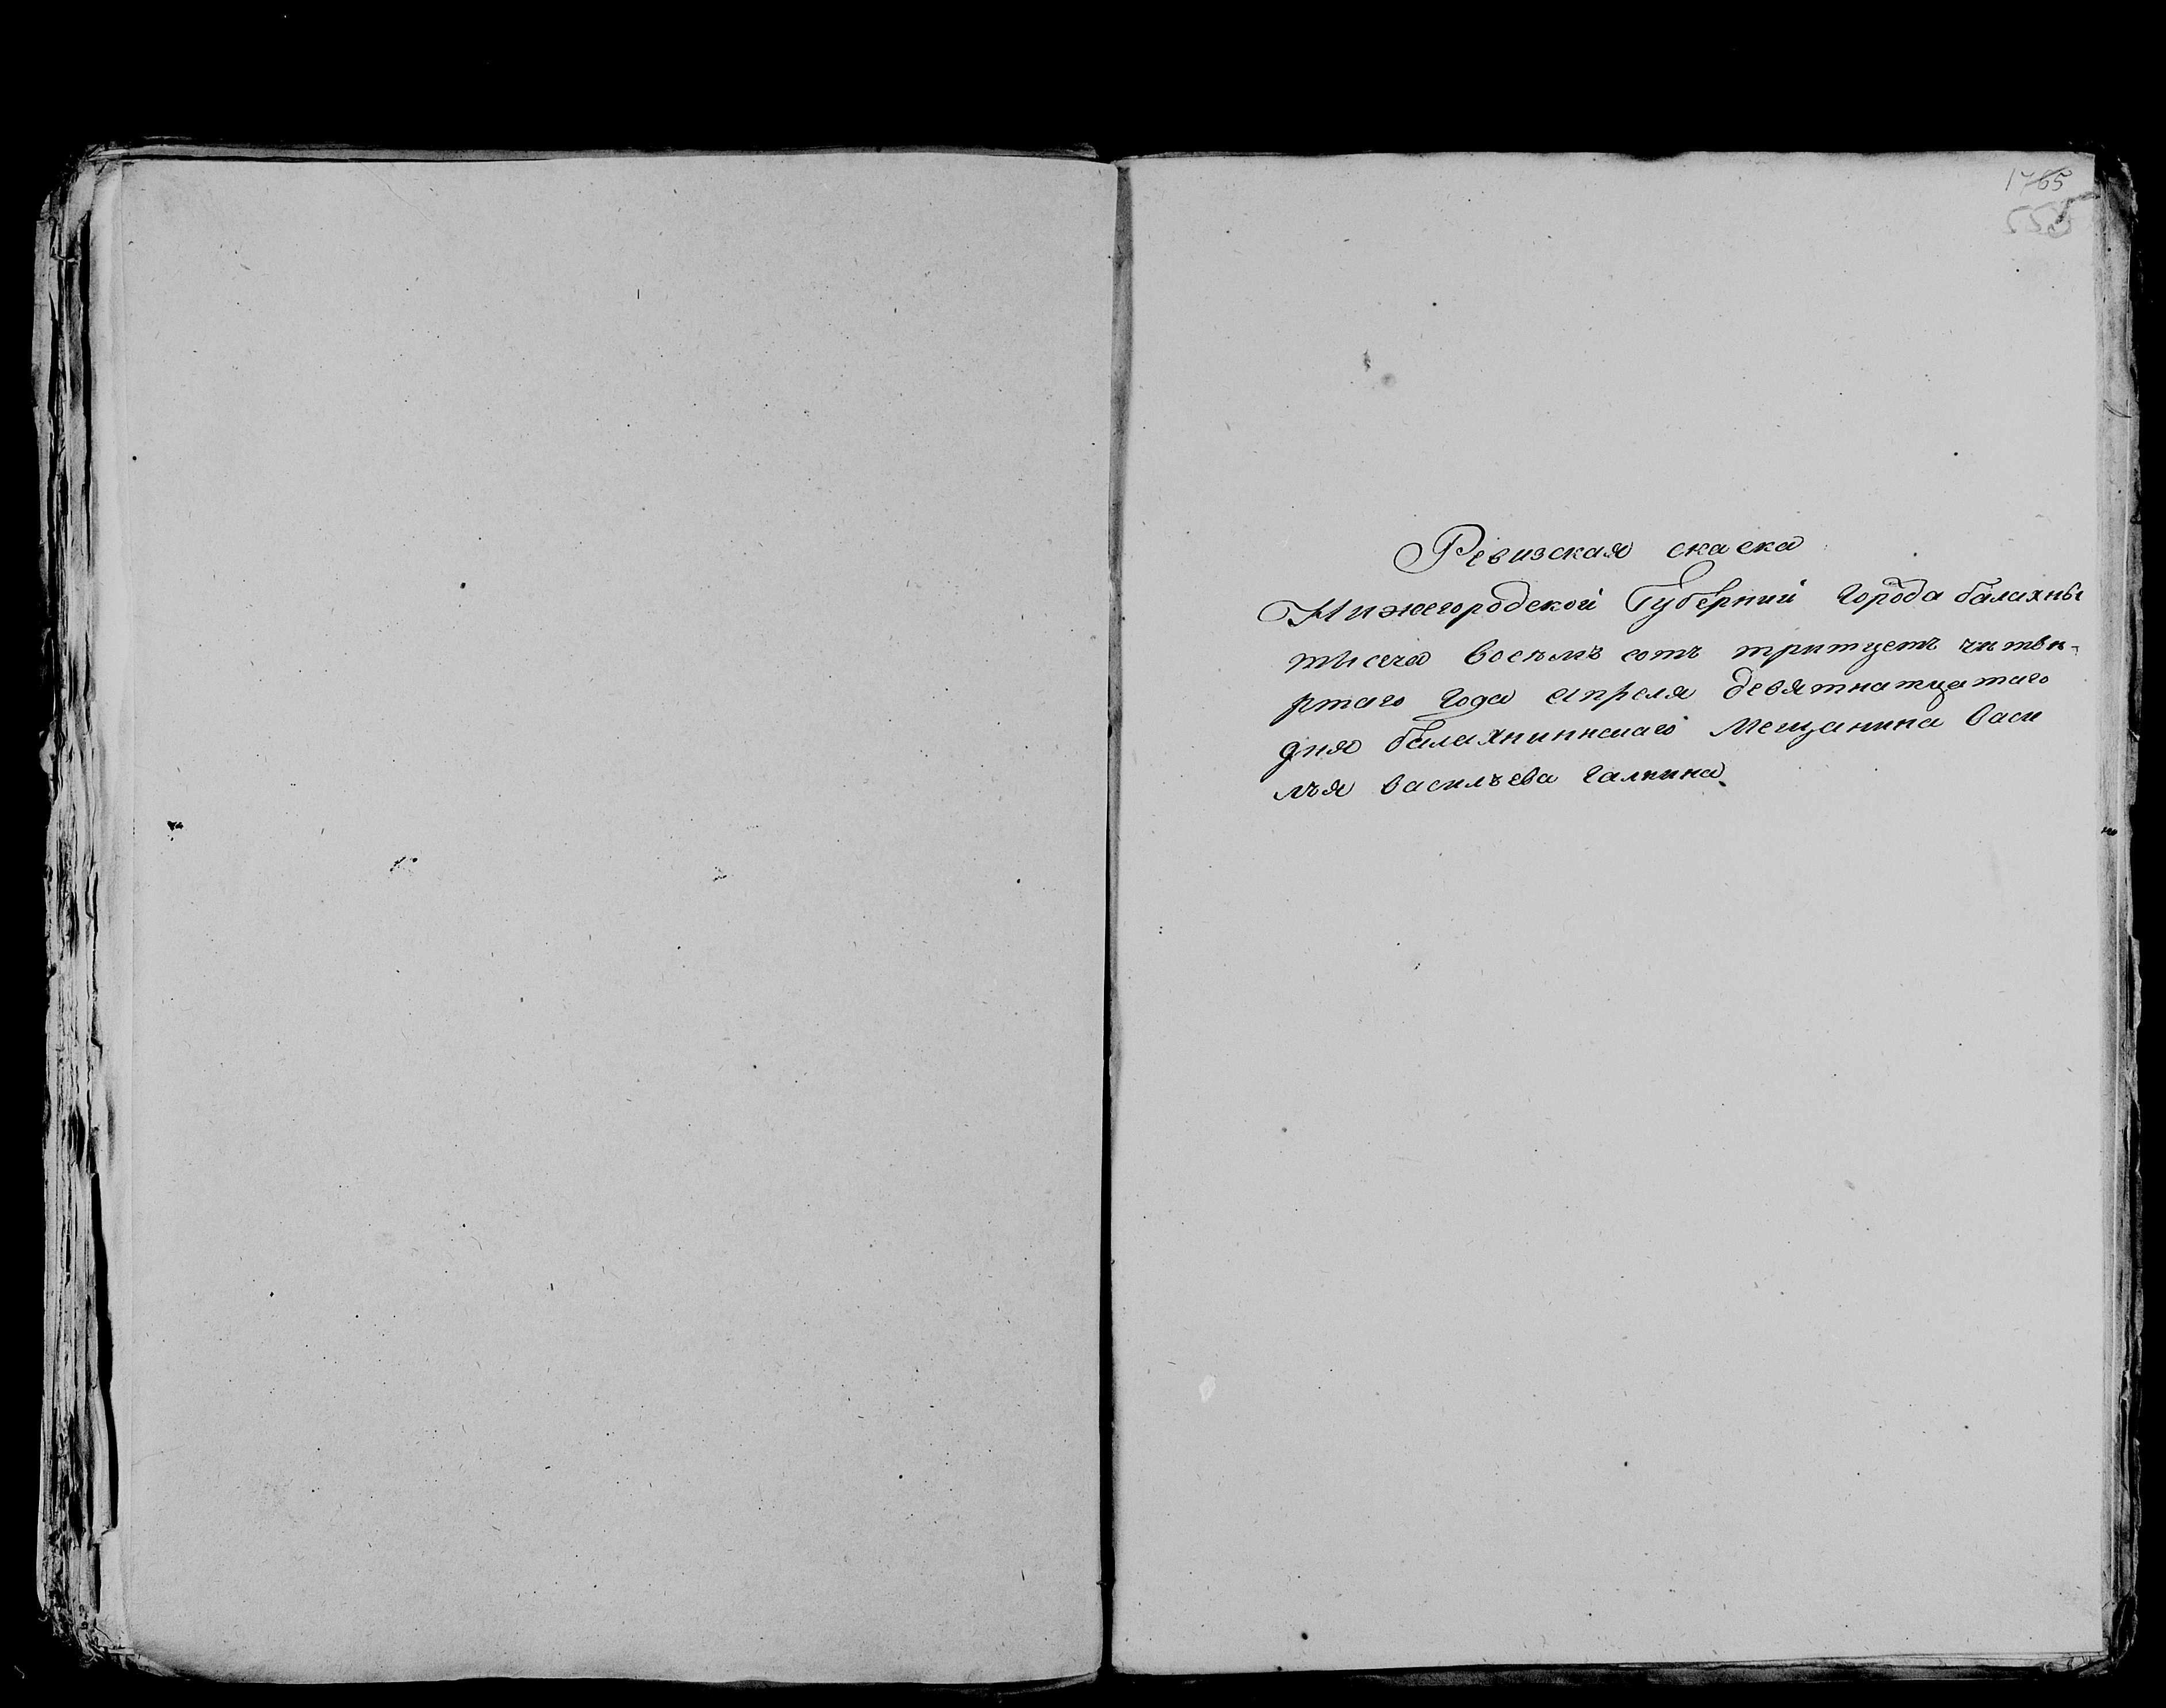 1765
555
Ревизская скаска
Нижегородской Губернии Города балахны
тысеча восемъ сотъ тритцеть читве-
ртаго года апреля девятнатцатаго
дня балахнинскаго Мещанина Васи
лъя васильева галкина